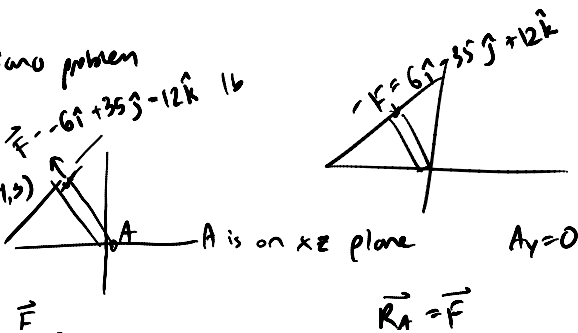 problem
F = -6î + 35ĵ - 12k̂ lb
-F = 6î - 35ĵ + 12k̂
,3)
A
A is on xz plane
Ay=0
F
R_A = F